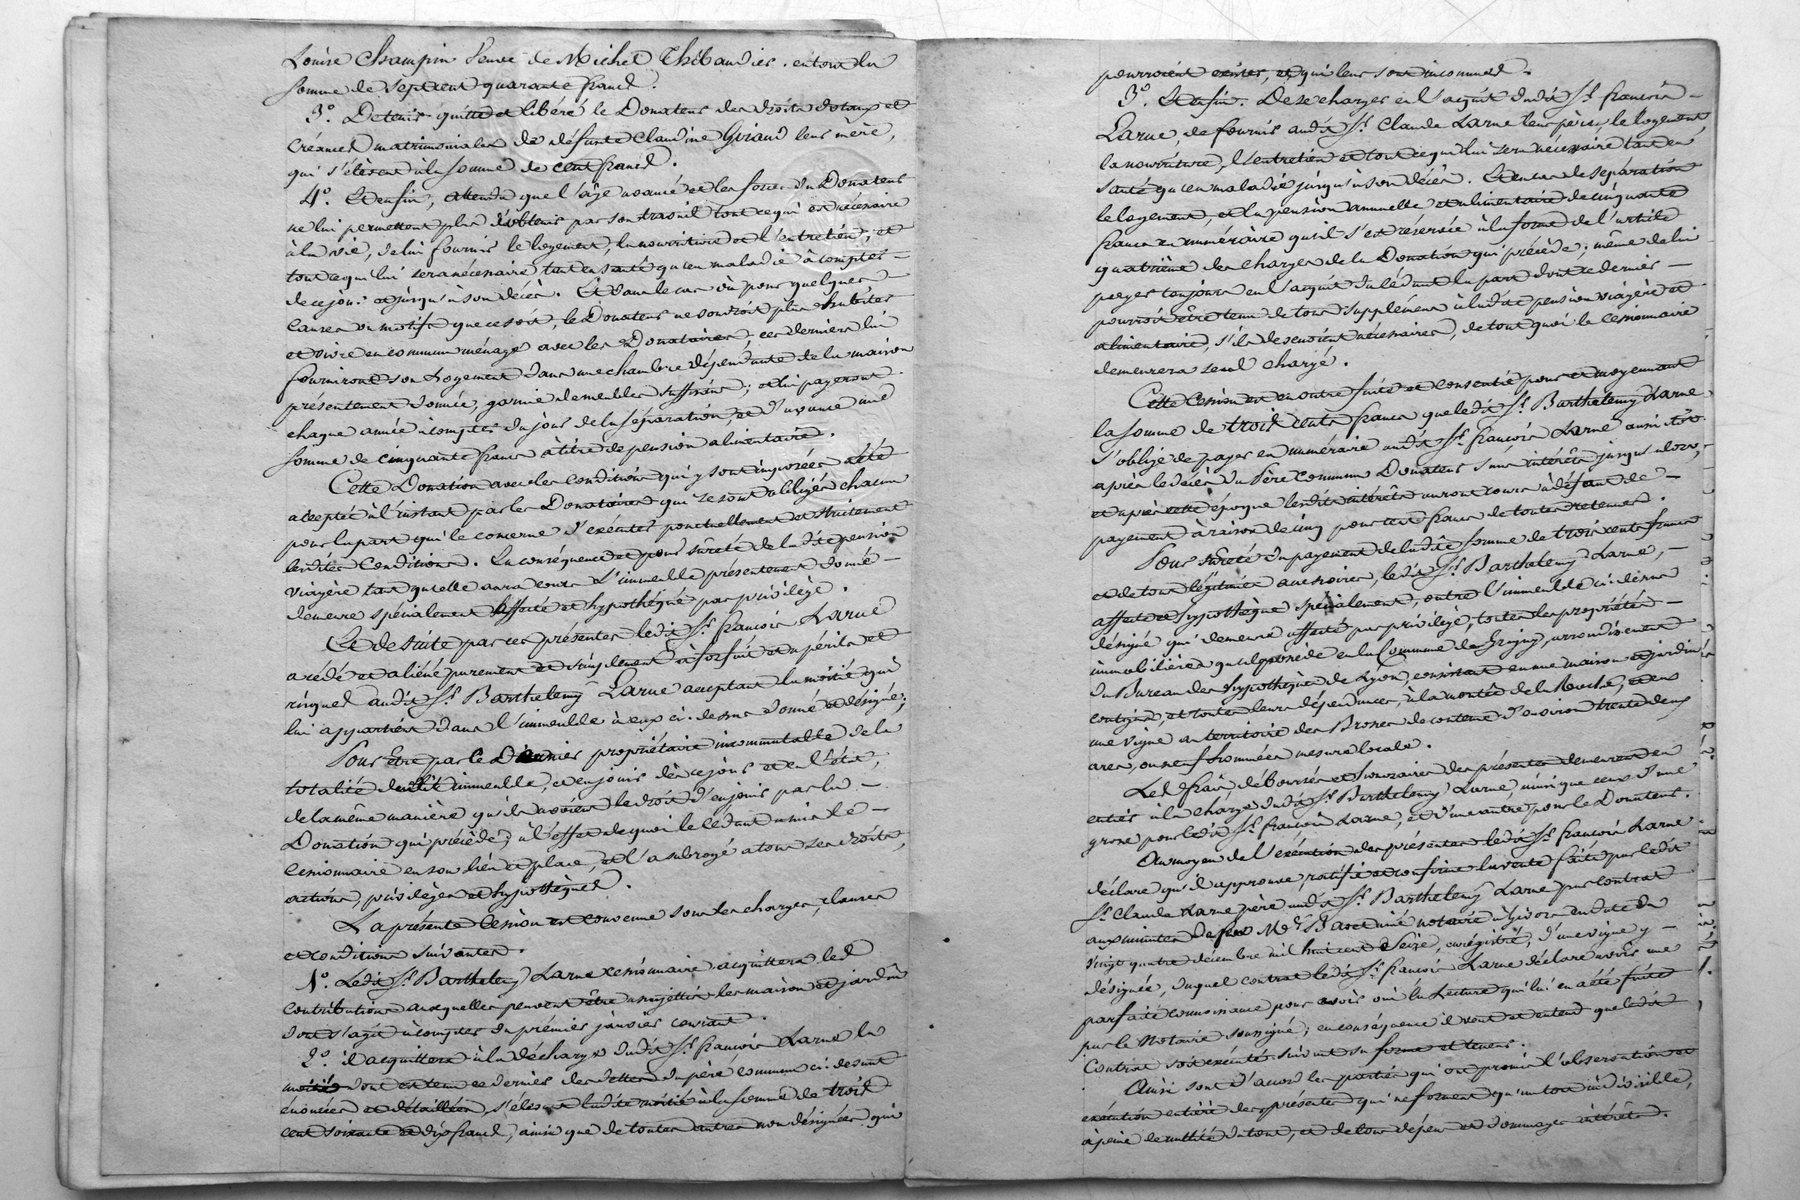 Louise Champin veuve de Michel Thibaudier, en tout la
somme de sept cent quarante francs.
3.° De tenir quitte et libéré le Donateur des droits dotaux et
créances matrimoniales de défunte Claudine Guiaud leur mère,
qui s'élèvent à la somme de cent francs.
4.° Et enfin, attendu que l'âge avancé et les forces du Donateur
ne lui permettent plus d'obtenir par son travail tout ce qui est nécessaire
à la vie, de lui fournir le logement, la nourriture et l'entretien, et
tout ce qui lui sera nécessaire tant en santé qu'en maladie à compter
de ce jour et jusqu'à son décès. Et dans le cas où pour quelques
causes ou motifs que ce soit, le Donateur ne voudroit plus habiter
et vivre en commun ménage avec les Donataires, ces derniers lui
fourniront son logement dans une chambre dépendante de la maison
présentement donnée, garnie de meubles suffisans; et lui payeront
chaque année à compter du jour de la séparation, et d'avance une
somme de cinquante francs à titre de pension alimentaire.
Cette Donation avec les conditions qui y sont imposées a été
acceptée à l'instant par les Donataires qui se sont obligés chacun
pour la part qui le concerne d'exécuter ponctuellement et strictement
lesdites Conditions. En conséquence et pour sûreté de ladite pension
viagère tant qu'elle aura cours l'immeuble présentement donné
demeure spécialement affecté et hypothéqué par privilège.
Et de suite par ces présentes ledit S.r françois Larue
a cédé et aliéné purement et simplement à forfait et à périls et
risques audit S.r Barthelemy Larue acceptant la moitié qui
lui appartient dans l'immeuble à eux ci-dessus donné et désigné;
Pour être par ce Dernier propriétaire incommutable de la
totalité dudit immeuble, et en jouir dès ce jour et en l'état,
de la même manière qu'ils avoient le droit d'en jouir par la
Donation qui précède; à l'effet de quoi le cédant a mis le
cessionnaire en son lieu et place, et l'a subrogé à tous ses droits,
actions, privilèges et hypothèques.
La présente Cession est convenue sous les charges, clauses
et conditions suivantes.
1.° Ledit S.r Barthelemy Larue cessionnaire acquittera les
contributions auxquelles peuvent être assujettis les maison et jardin
dont s'agit à compter du premier janvier courant.
2.° il acquittera à la décharge dudit S.r françois Larue la
moitié dont est tenu ce dernier des dettes du père commun ci-devant
énoncées et détaillées, s'élevant ladite moitié à la somme de trois
cent soixante et dix francs, ainsi que de toutes autres non désignées qui
pourroient exister, et qui leur sont inconnues.
3.° Et enfin. De se charger en l'acquit dudit S.r françois
Larue, de fournir audit S.r Claude Larue leur père, le logement
la nourriture, l'entretien et tout ce qui lui sera nécessaire tant en
santé qu'en maladie jusqu'à son décès. Et en cas de séparation
le logement, et la pension annuelle et alimentaire de cinquante
francs en numéraire qu'il s'est réservée à la forme de l'article
quatrième des charges de la Donation qui précède; même de lui
payer toujours en l'acquit du cédant la part dont ce dernier
pourroit être tenu de tous supplémens à ladite pension viagère et
alimentaire, s'ils devenoient nécessaires, de tout quoi le cessionnaire
demeurera seul chargé.
Cette Cession est en outre faite et consentie pour et moyennant
la somme de trois cents francs que ledit S.r Barthelemy Larue
s'oblige de payer en numéraire audit S.r françois Larue aussitôt
après le décès du Père commun Donateur sans intérêts jusqu'alors,
et après cette époque lesdits intérêts auront cours à défaut de
payement à raison de cinq pour cent francs de toutes retenues.
Pour sûreté du payement de ladite somme de trois cents francs
et de tous légitimes accessoires, ledit S.r Barthelemy Larue,
affecte et hypothèque spécialement, outre l'immeuble ci-dessus
désigné qui demeure affecté par privilège, toutes les propriétés
immobilières qu'il possède en la Commune de Grigny, arrondissement
du Bureau des hypothèques de Lyon, consistant en une maison et jardin
contigus, et toutes leurs dépendances, à la montée de la Roche, et en
une vigne au territoire des Brosses de contenue d'environ trente deux
ares, ou neuf hommées mesure locale.
Les frais, déboursés et honoraires des présentes demeurent en
entier à la charge dudit S.r Barthelemy Larue, ainsi que ceux d'une
grosse pour ledit S.r françois Larue, et d'une autre pour le Donateur.
Au moyen de l'exécution des présentes ledit S.r françois Larue
déclare qu'il approuve, ratifie et confirme la vente faite par ledit
S.r Claude Larue père audit S.r Barthelemy Larue par contrat
aux minutes de feu M.e notaire à Givors en date du
vingt quatre décembre mil huit cent seize, enregistré, d'une vigne y
désignée, duquel contrat ledit S.r françois Larue déclare avoir une
parfaite connoissance pour avoir ouï la lecture qui lui en a été faite
par le Notaire soussigné; en conséquence il veut et entend que ledit
Contrat soit exécuté suivant sa forme et teneur.
Ainsi sont d'accord les parties qui ont promis l'observation et
exécution entière des présentes qui ne forment qu'un tout indivisible,
à peine de nullité du tout, et de tous dépens et dommages intérêts.